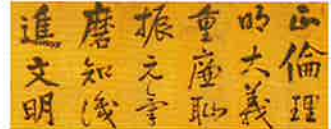 正倫理
明大義
重廉耻
振元氣
磨知識
進文明